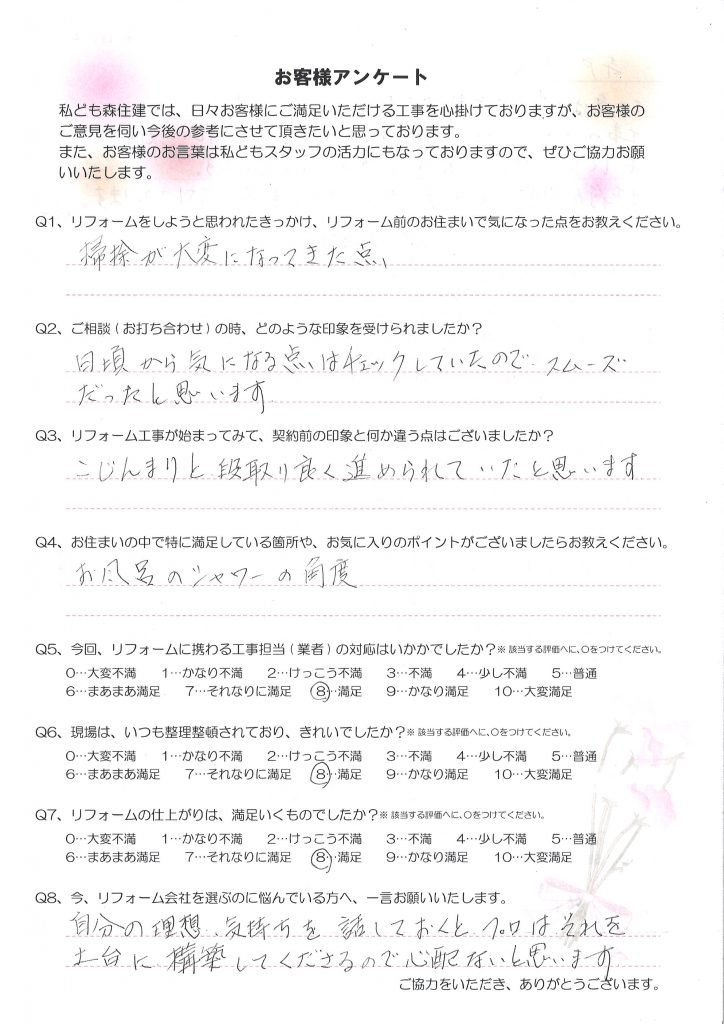 お客様アンケート
私ども森住建では、日々お客様にご満足いただける工事を心掛けておりますが、お客様の
ご意見を伺い今後の参考にさせて頂きたいと思っております。
また、お客様のお言葉は私どもスタッフの活力にもなっておりますので、ぜひご協力お願
いいたします。
Q1、リフォームをしようと思われたきっかけ、リフォーム前のお住まいで気になった点をお教えください。
掃除が大変になってきた点、
Q2、ご相談(お打ち合わせ)の時、どのような印象を受けられましたか?
日頃から気になる点はチェックしていたので、スムーズ
だったと思います
Q3、リフォーム工事が始まってみて、契約前の印象と何か違う点はございましたか?
こじんまりと段取り良く進められていたと思います
Q4、お住まいの中で特に満足している箇所や、お気に入りのポイントがございましたらお教えください。
お風呂のシャワーの角度
Q5、今回、リフォームに携わる工事担当(業者)の対応はいかかでしたか?※該当する評価へに、○をつけてください。
0…大変不満 1…かなり不満 2…けっこう不満 3…不満 4…少し不満 5…普通
6…まあまあ満足 7…それなりに満足 8…満足 9…かなり満足 10…大変満足
Q6、現場は、いつも整理整頓されており、きれいでしたか?※該当する評価へに、○をつけてください。
0…大変不満 1…かなり不満 2…けっこう不満 3…不満 4…少し不満 5…普通
6…まあまあ満足 7…それなりに満足 8…満足 9…かなり満足 10…大変満足
Q7、リフォームの仕上がりは、満足いくものでしたか?※該当する評価へに、○をつけてください。
0…大変不満 1…かなり不満 2…けっこう不満 3…不満 4…少し不満 5…普通
6…まあまあ満足 7…それなりに満足 8…満足 9…かなり満足 10…大変満足
Q8、今、リフォーム会社を選ぶのに悩んでいる方へ、一言お願いいたします。
自分の理想、気持ちを話しておくとプロはそれを
土台に構築してくださるので心配ないと思います
ご協力をいただき、ありがとうございます。